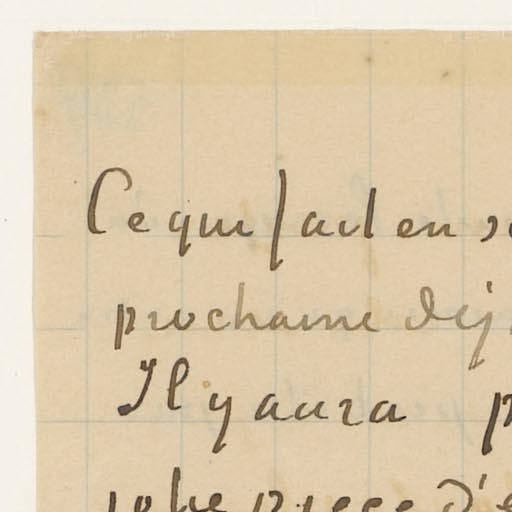 Ce qui fait en s
prochaine déj
Il y aura p
jolie pièce d'e